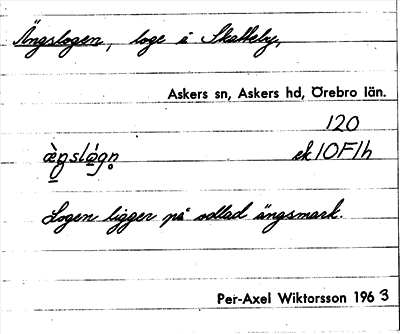 Ängslogen, loge i Skalleby,
Askers sn, Askers hd, Örebro län.
120
æ̀ŋslǿgn̥ ek 10F1h
Logen ligger på odlad ängsmark.
Per-Axel Wiktorsson 1963